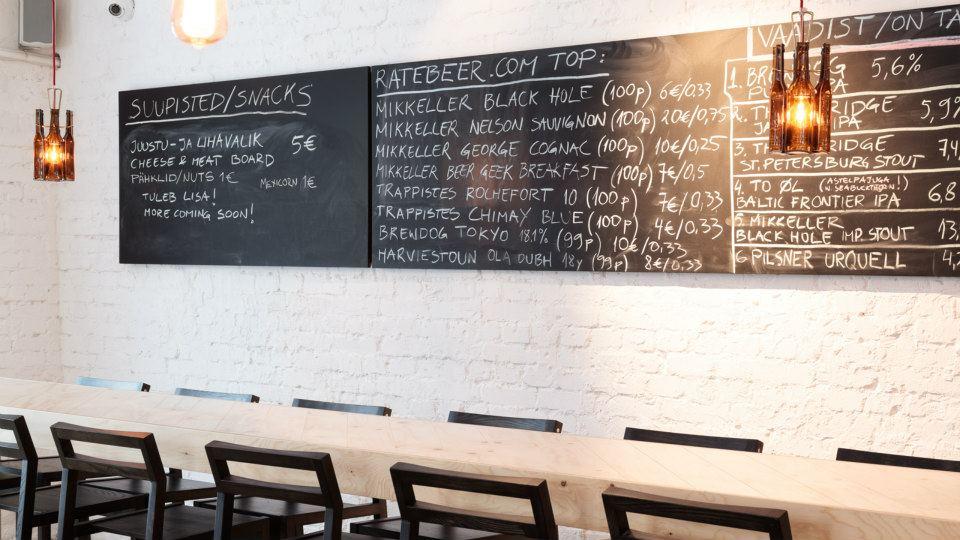 SUUPISTED/SNACKS
JUUSTU- JA LIHAVALIK 5€
CHEESE & MEAT BOARD
PÄHKLID/NUTS 1€ MEXICORN 1€
TULEB LISA!
MORE COMING SOON!
RATEBEER.COM TOP:
MIKKELLER BLACK HOLE (100p) 6€/0,33
MIKKELLER NELSON SAUVIGNON (100p) 20€/0,75
MIKKELLER GEORGE COGNAC (100p) 10€/0,25
MIKKELLER BEER GEEK BREAKFAST (100p) 7€/0,5
TRAPPISTES ROCHEFORT 10 (100p) 7€/0,33
TRAPPISTES CHIMAY BLUE (100p) 4€/0,33
BREWDOG TOKYO 18.1% (99p) 10€/0,33
HARVIESTOUN OLA DUBH 18y (99p) 8€/0,33
/ON TA
1. 5,6%
2. 5,9%
IPA
3. 7,4
ST. PETERSBURG STOUT
4. TO ØL (ASTELPAJUGA! 6,8
BALTIC FRONTIER IPA
5. MIKKELLER 13,
BLACK HOLE IMP. STOUT
6 PILSNER URQUELL 4,